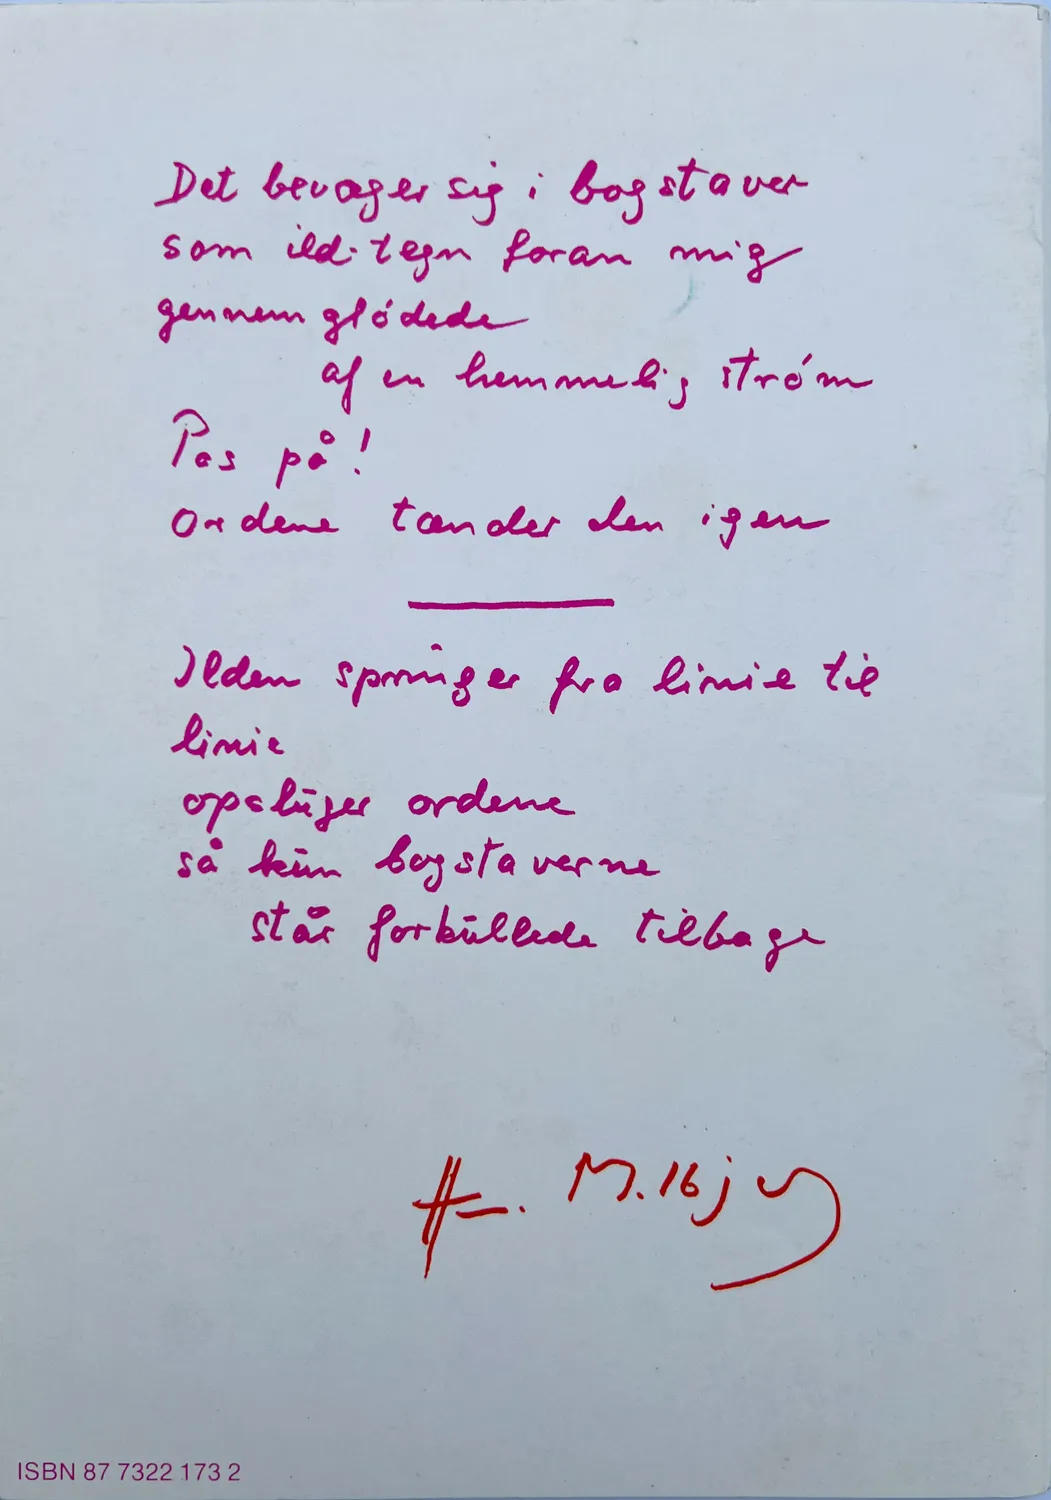 Det bevæger sig i bogstaver
som ild-tegn foran mig
gennemglódede
af en hemmelig stróm
Pas på!
ordene tænder den igen
Ilden springer fra linie til
linie
opsluger ordene
så kun bogstaverne
står forkullede tilbage
ISBN 87 7322 173 2